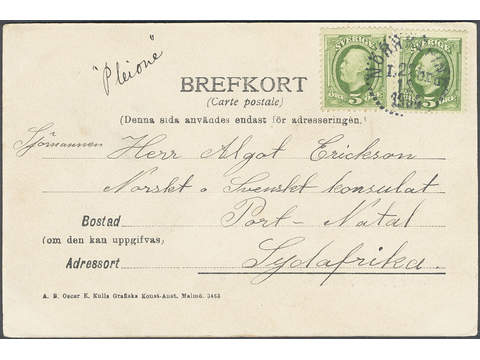 "Pleione"
SVERIGE SVERIGE
5 ÖRE 5 ÖRE
BREFKORT
(Carte postale)
(Denna sida användes endast för adresseringen.)
Sjömannen Herr Algot Erickson
Norskt o Svenskt konsulat
Bostad Port - Natal
(om den kan uppgifvas)
Adressort Sydafrika.
A. B. Oscar E. Kulls Grafiska Konst-Anst. Malmö. 3463